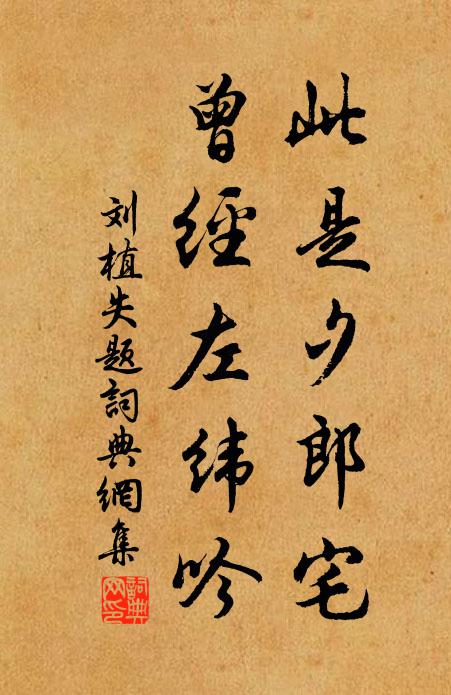 此是夕郎宅
曾經左緯吟
刘植失题詞典網集
詞典網印